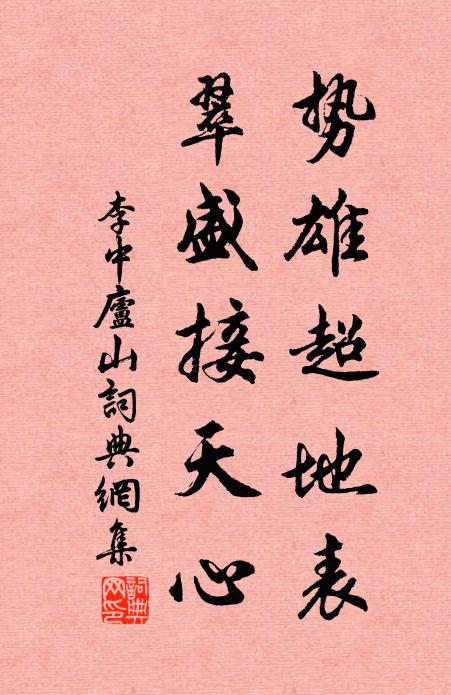 势雄超地表
翠盛接天心
李中廬山詞典網集
詞典网印